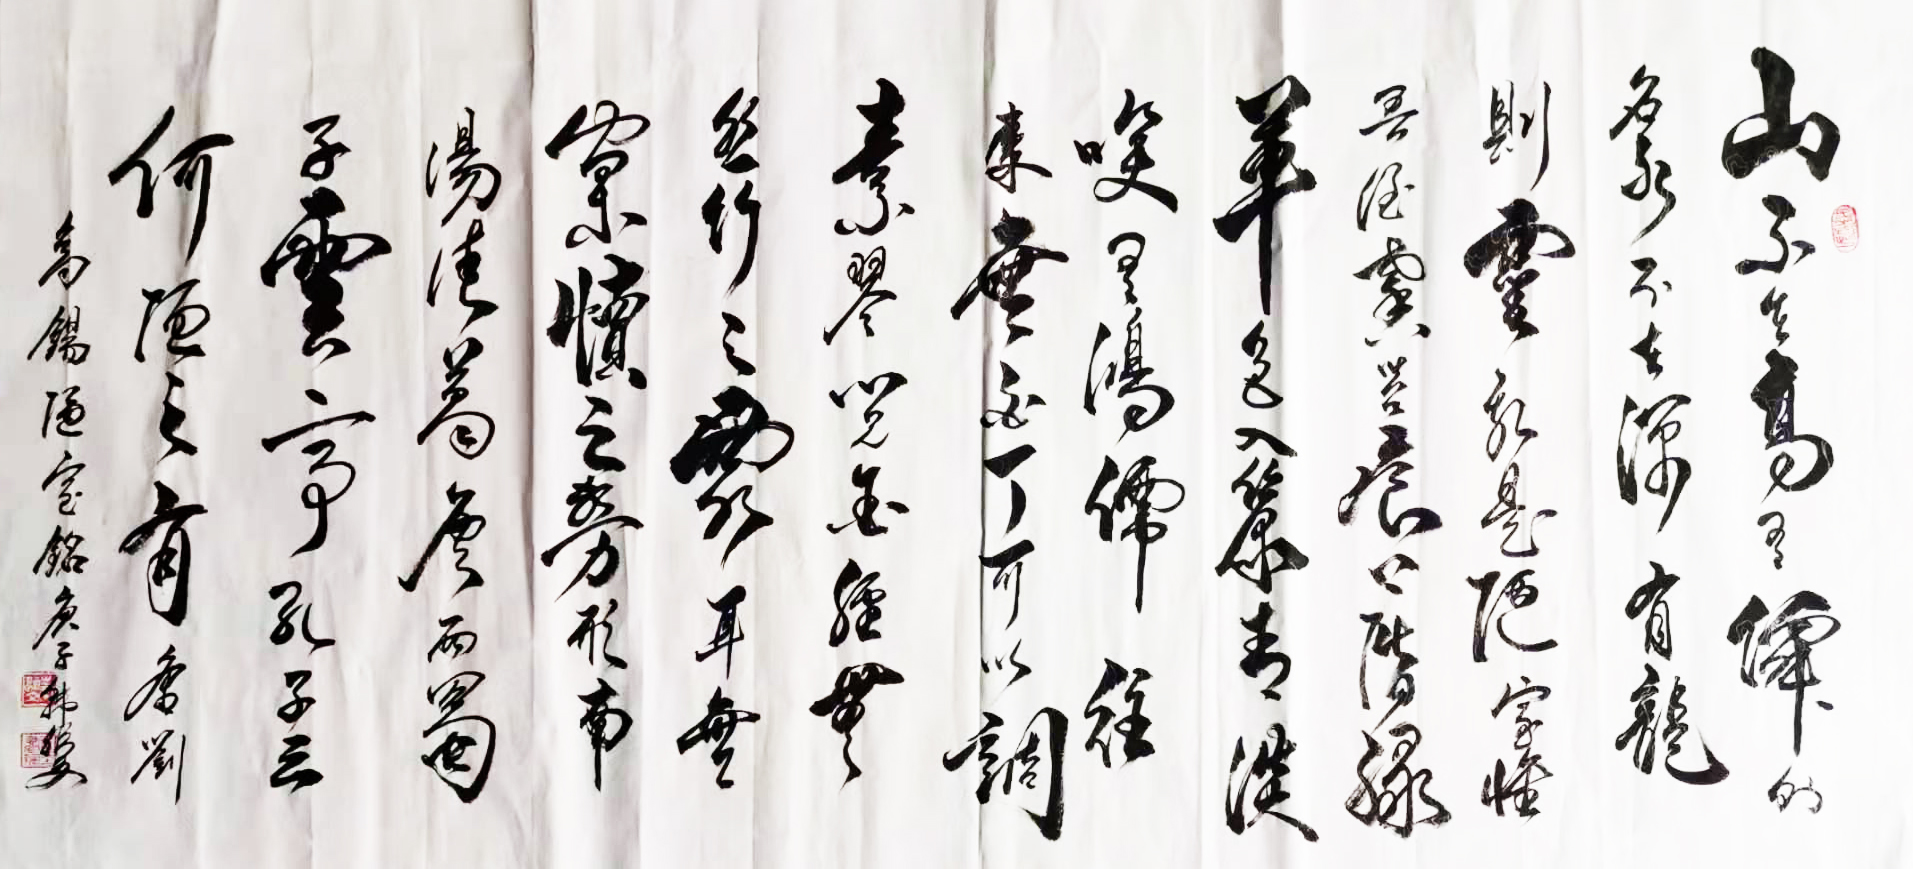 山不在高有僊則
名水不在深有龍
則靈斯是陋室惟
吾德馨苔痕上階緑
草色入簾青談
笑有鴻儒往
來無白丁可以調
素琴閱金經無
絲竹之亂耳無
案牘之勞形南
陽諸葛廬西蜀
子雲亭孔子云
何陋之有唐劉
禹錫陋室銘庚子韓